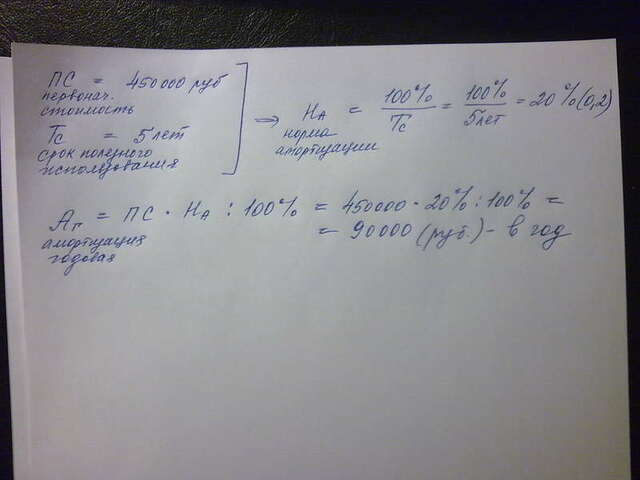 ПС = 450000 руб
первонач.
стоимость
Тс = 5 лет
срок полезного
использования
=> НА = 100% / Тс = 100% / 5 лет = 20% (0,2)
норма
амортизации
Аг = ПС · НА : 100% = 450000 · 20% : 100% =
амортизация
годовая
= 90000 (руб.) - в год